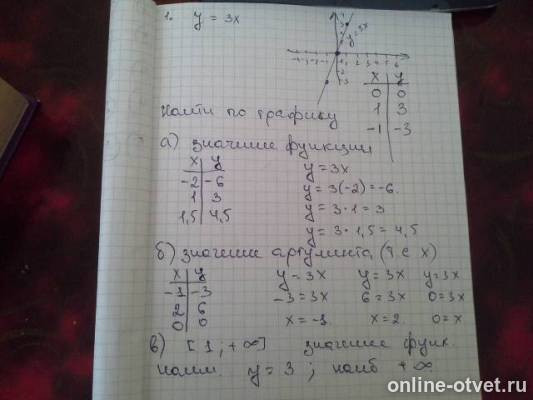 1. y = 3x
y=3x
x y
0 0
1 3
-1 -3
Найти по графику
а) значение функции
x y
-2 -6
1 3
1,5 4,5
y = 3x
y = 3(-2) = -6.
y = 3·1 = 3
y = 3·1,5 = 4,5
б) значение аргумента (т.е x)
x y
-1 -3
2 6
0 0
y = 3x y = 3x y = 3x
-3 = 3x 6 = 3x 0 = 3x
x = -1 x = 2 0 = x
в) [1; +∞] значение функ.
наим. y = 3; наиб +∞.
online-otvet.ru